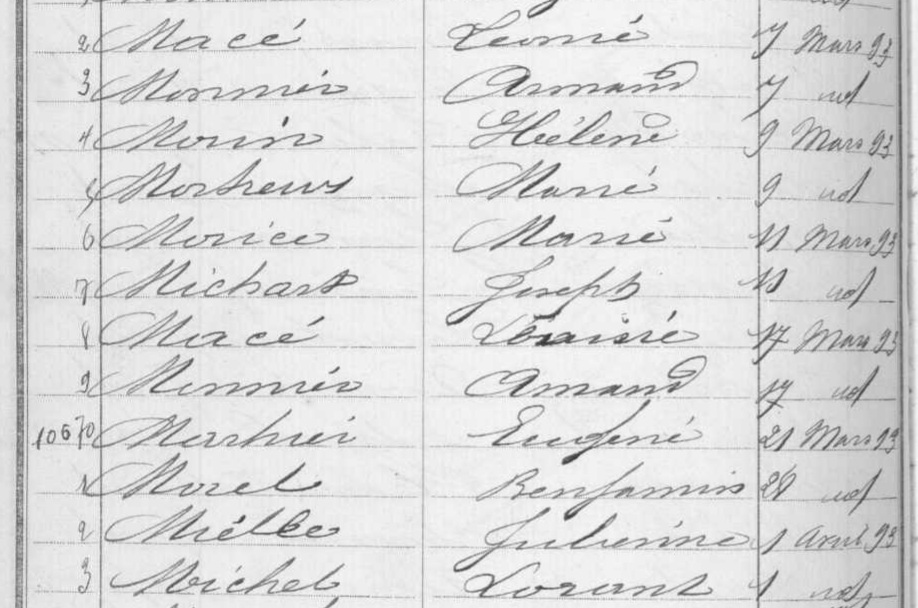 2 Macé Leonié 7 Mars 93
3 Monnier Armand 7 id
4 Morin Hélène 9 Mars 93
5 Marié 9 id
6 Morice Marié 11 Mars 93
7 Joseph 11 id
8 Macé Louisié 17 Mars 93
9 Monnier Amand 17 id
10670 Eugené 21 Mars 93
1 Morel Benjamin 28 id
2 Julienne 1 Avril 93
3 Michel Lorant 1 id